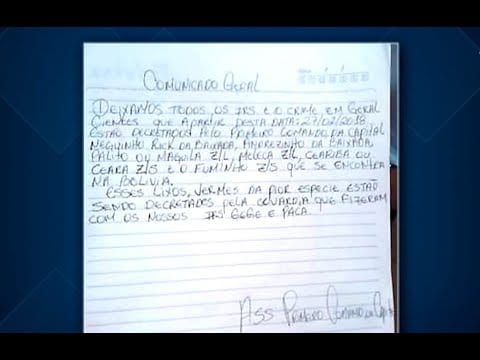 COMUNICADO GERAL
DEIXAMOS TODOS OS IRS E O CRIME EM GERAL
CIENTES QUE APARTIR DESTA DATA: 27/02/2018
ESTÃO DECRETADOS PELO PRIMEIRO COMANDO DA CAPITAL
NEGUINHO RICK DA BAIXADA, ANDREZINHO DA BAIXADA
PALITO OU MAGUILA Z/L, MELECA Z/L, CEARIBA OU
CEARA Z/S E O FUMINHO Z/S QUE SE ENCONTRA
NA BOLIVIA.
ESSES LIXOS, VERMES DA PIOR ESPECIE ESTÃO
SENDO DECRETADOS PELA COVARDIA QUE FIZERAM
COM OS NOSSOS IRS GEGE E PACA.
ASS PRIMEIRO COMANDO DA CAPITAL